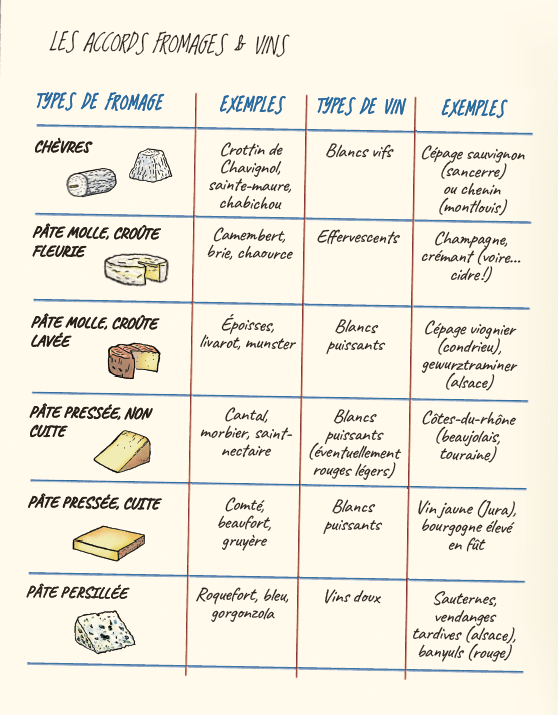 LES ACCORDS FROMAGES & VINS
TYPES DE FROMAGE
EXEMPLES
TYPES DE VIN
EXEMPLES
CHÈVRES
Crottin de
Chavignol,
sainte-maure,
chabichou
Blancs vifs
Cépage sauvignon
(sancerre)
ou chenin
(montlouis)
PÂTE MOLLE, CROÛTE
FLEURIE
Camembert,
brie, chaource
Effervescents
Champagne,
crémant (voire...
cidre!)
PÂTE MOLLE, CROÛTE
LAVÉE
Époisses,
livarot, munster
Blancs
puissants
Cépage viognier
(condrieu),
gewurztraminer
(alsace)
PÂTE PRESSÉE, NON
CUITE
Cantal,
morbier, saint-
nectaire
Blancs
puissants
(éventuellement
rouges légers)
Côtes-du-rhône
(beaujolais,
touraine)
PÂTE PRESSÉE, CUITE
Comté,
beaufort,
gruyère
Blancs
puissants
Vin jaune (Jura),
bourgogne élevé
en fût
PÂTE PERSILLÉE
Roquefort, bleu,
gorgonzola
Vins doux
Sauternes,
vendanges
tardives (alsace),
banyuls (rouge)